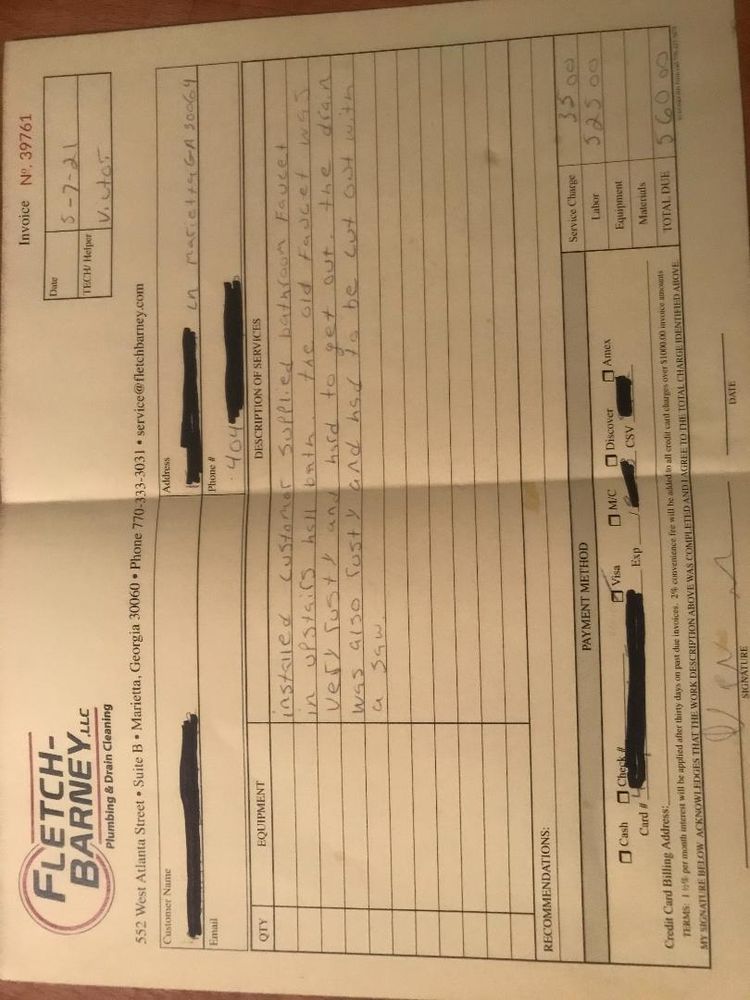 FLETCH-
BARNEY, LLC
Plumbing & Drain Cleaning
Invoice Nº. 39761
Date 5-7-21
TECH/ Helper Victor
552 West Atlanta Street • Suite B • Marietta, Georgia 30060 • Phone 770-333-3031 • service@fletchbarney.com
Customer Name
Address
Ln Marietta GA 30064
Email
Phone #
404
QTY EQUIPMENT DESCRIPTION OF SERVICES
installed customor supplied bathroom Faucet
in upstairs hall bath. the old Faucet was
very rusty and hard to get out. the drain
was also rusty and had to be cut out with
a saw.
RECOMMENDATIONS:
Service Charge 35 00
Labor 525 00
Equipment
Materials
TOTAL DUE 560 00
PAYMENT METHOD
Cash Check # Visa M/C Discover Amex
Card # Exp / CSV
Credit Card Billing Address:
TERMS: 1 ½% per month interest will be applied after thirty days on past due invoices. 2% convenience fee will be added to all credit card charges over $1000.00 invoice amounts
MY SIGNATURE BELOW ACKNOWLEDGES THAT THE WORK DESCRIPTION ABOVE WAS COMPLETED AND I AGREE TO THE TOTAL CHARGE IDENTIFIED ABOVE
SIGNATURE DATE